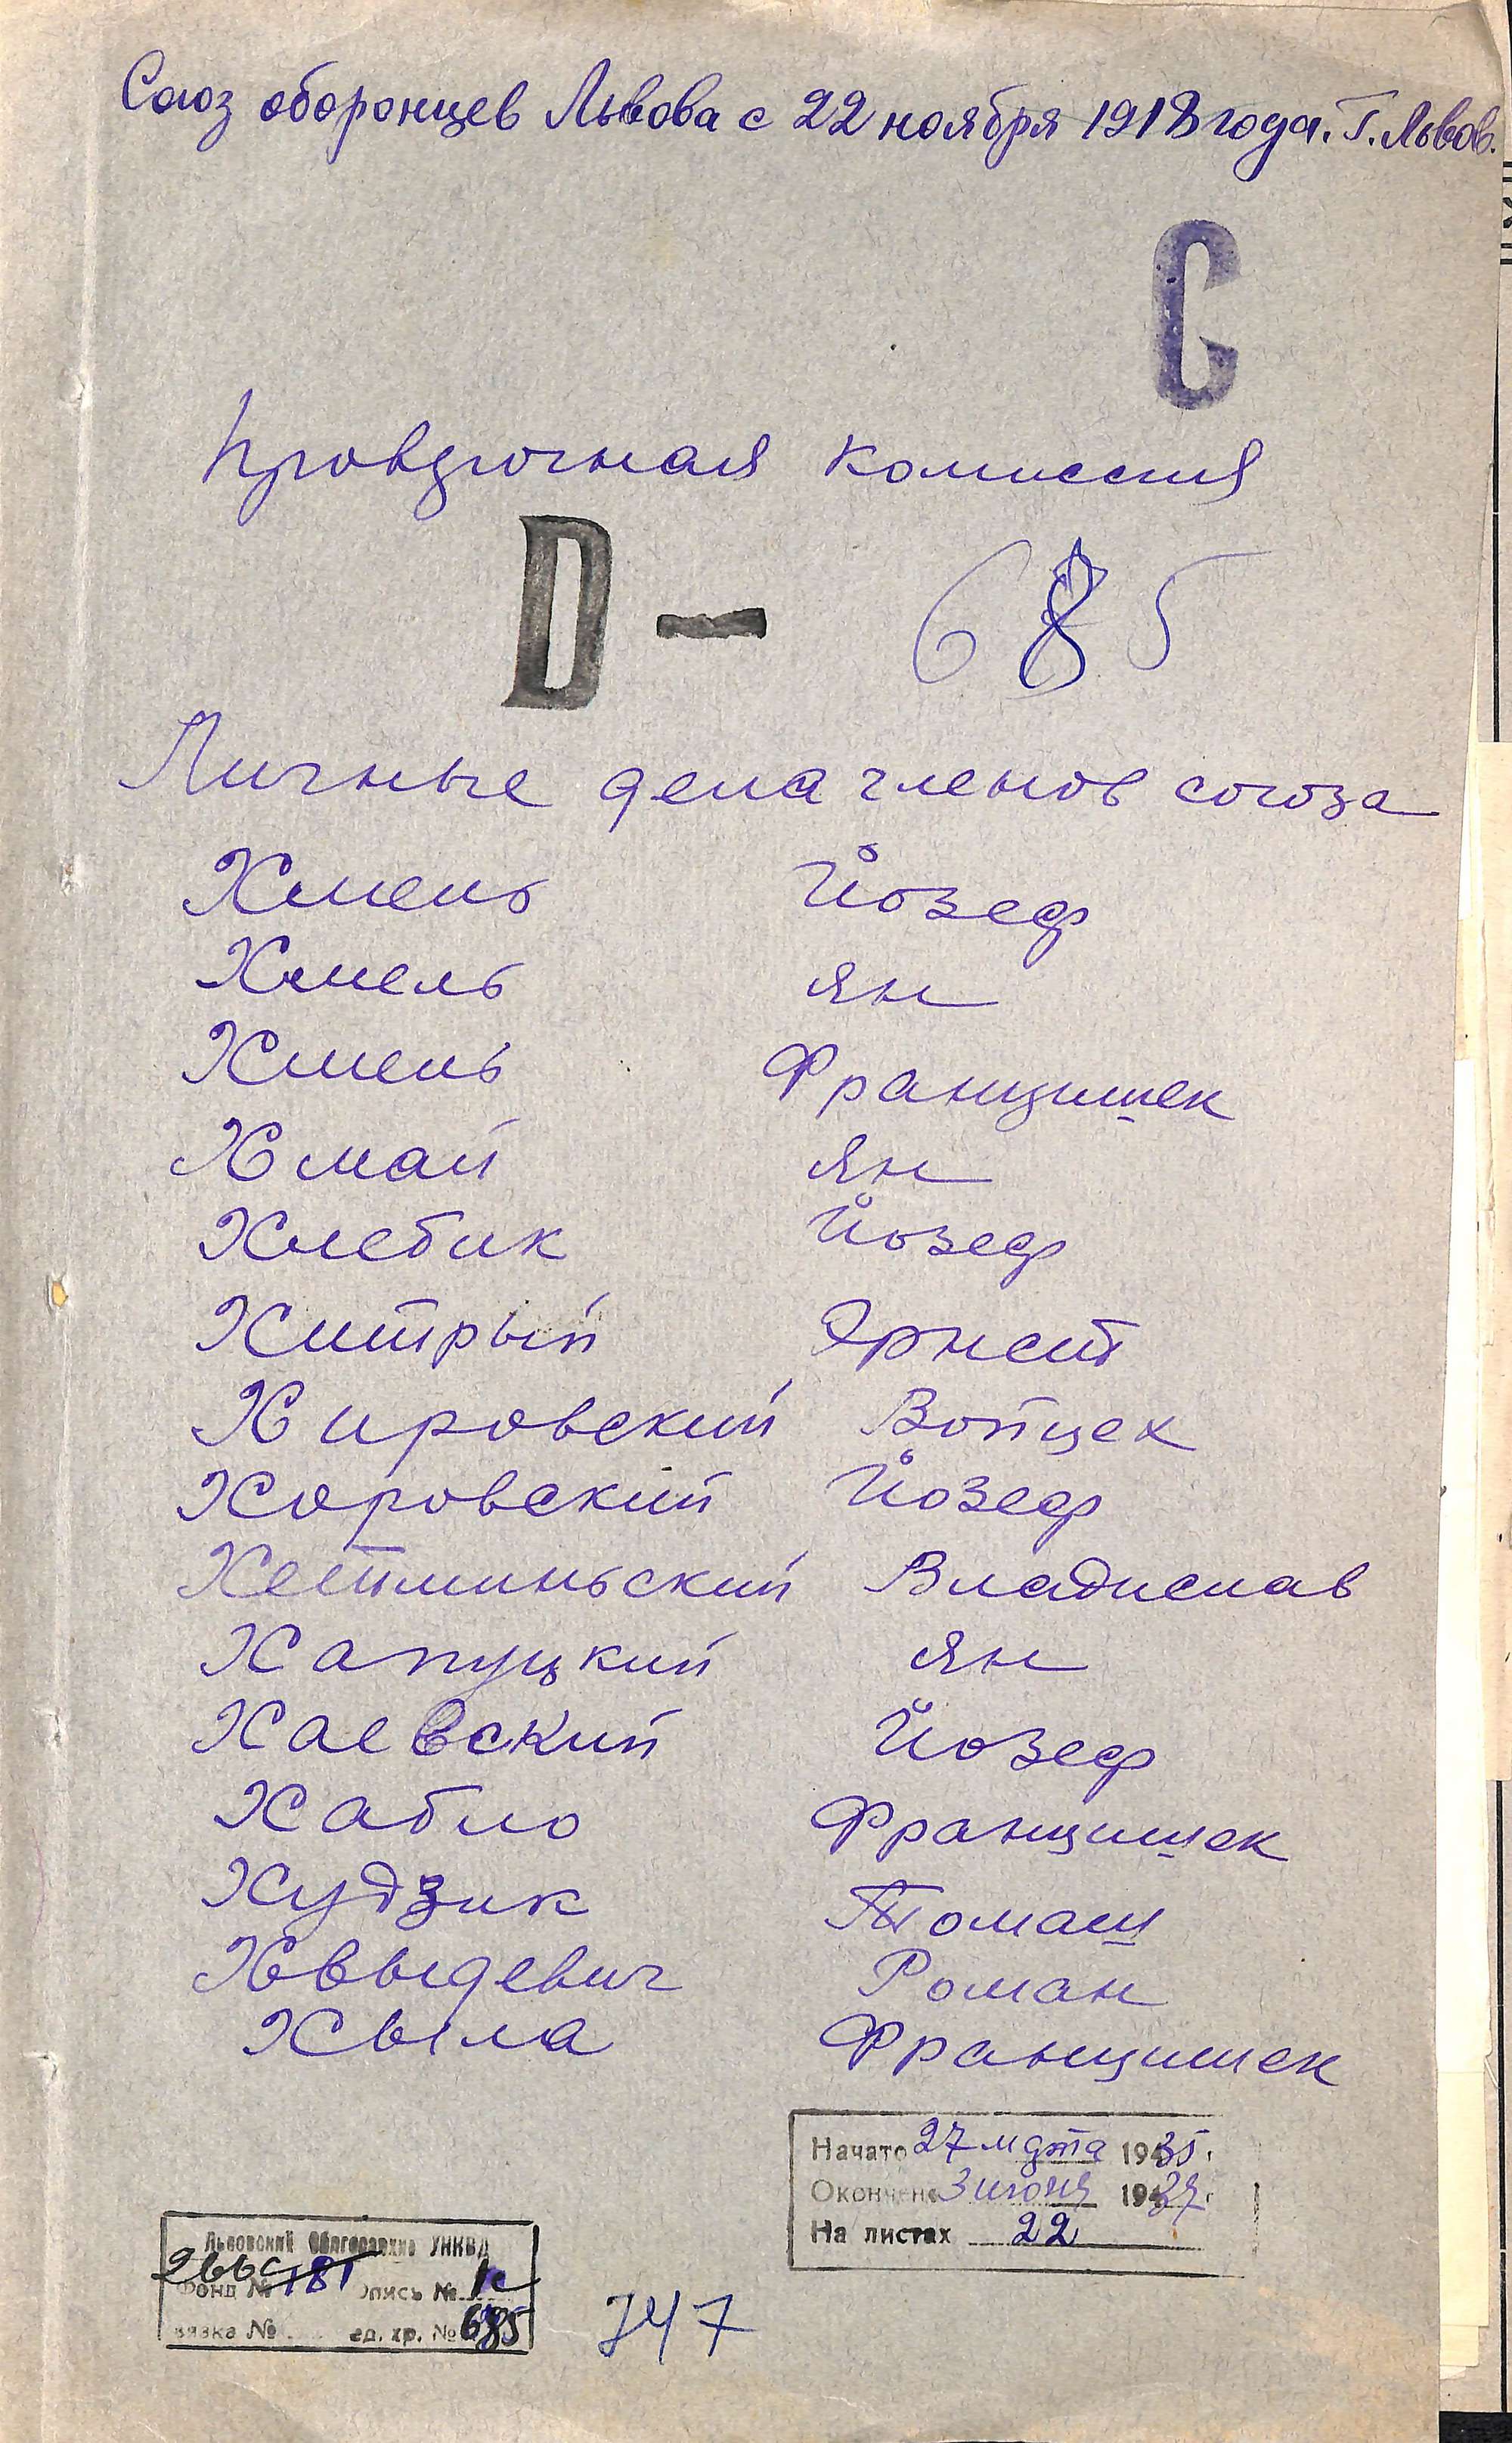 Союз оборонцев Львова с 22 ноября 1918 года. Г. Львов.
С
комиссия
D – 685
Личные дела членов союза
Хмель Йозеф
Хмель Ян
Хмель Францишек
Хмай Ян
Хлебик Йозеф
Хитрый Эрнест
Хировский Войцех
Хоровский Йозеф
Владислав
Хапуцкий Ян
Хаевский Йозеф
Хабло Францишек
Худзик Томаш
Хвыдевич Роман
Хыла Францишек
Начато 27 марта 1935 г.
Окончено 3 июня 1937 г.
На листах 22
Львовский Облгосархив УНКВД
266с
Фонд № 181 Опись № 1с
вязка № ед. хр. № 685
747